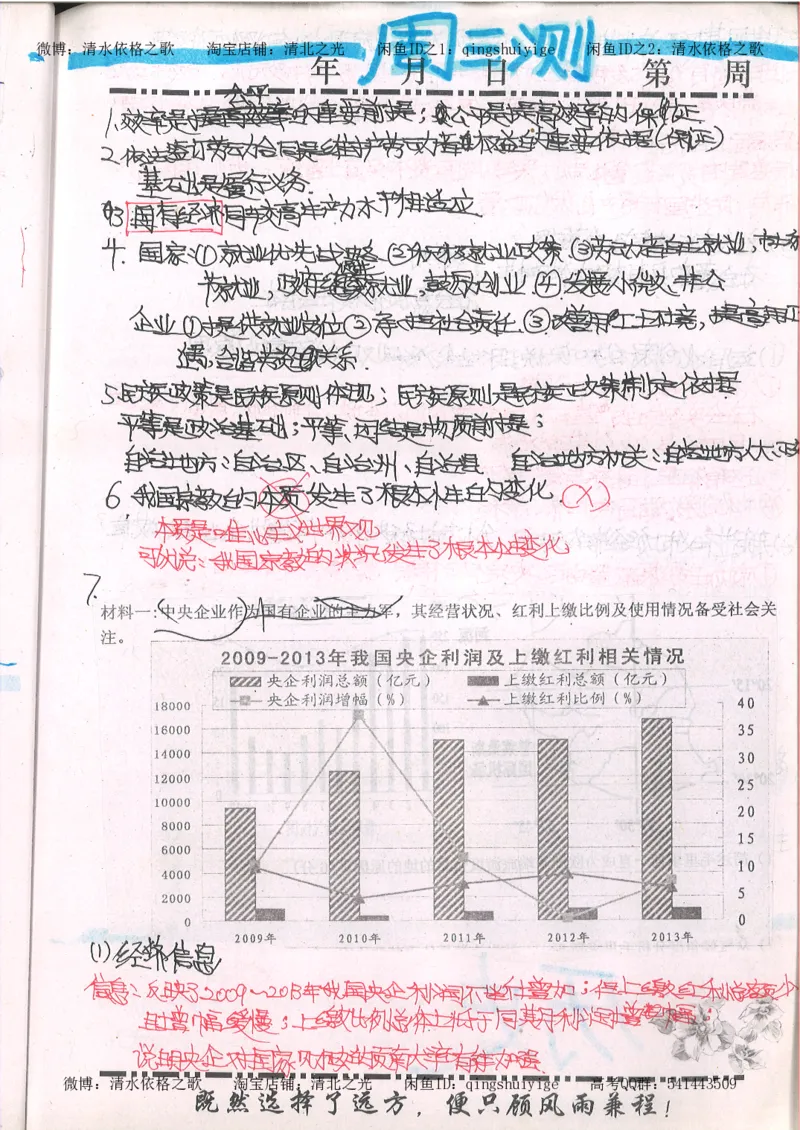 微博：清水依格之歌 淘宝店铺：清北之光 闲鱼ID之1：qingshuiyige 闲鱼ID之2：清水依格之歌
周三测
年 月 日 第 周
公平
1.效率是提高效率的重要前提；公平是提高效率的保证.
2.依法签订劳动合同是维护劳动者合法权益的重要依据(保证)
基础是履行义务.
3.国有经济同较高生产力水平相适应
4.国家:①就业优先战略 ②积极就业政策 ③劳动者自主就业,市场
节就业,政府促进就业,鼓励创业 ④发展
企业①提供就业岗位②承担社会责任.③
遇;
5.民族政策是民族原则体现；民族原则是民族政策制定依据
平等是政治基础；平等、团结是物质前提；
自治地方:自治区、自治州、自治县 自治地方机关:自治地方人大、政
6 我国宗教的本质发生了根本性的变化 (×)
本质是唯心主义世界观
可以说:我国宗教的状况发生了根本性变化
7.
材料一:中央企业作为国有企业的主力军，其经营状况、红利上缴比例及使用情况备受社会关
注。
2009-2013年我国央企利润及上缴红利相关情况
央企利润总额（亿元） 上缴红利总额（亿元）
央企利润增幅（%） 上缴红利比例（%）
18000 40
16000 35
14000 30
12000 25
10000 20
8000 15
6000 10
4000 5
2000 0
0
2009年 2010年 2011年 2012年 2013年
(1)经济信息
信息:反映了2009~2013年我国央企利润不断增加；但上缴红利总额少
且增幅缓慢；上缴比例总体上低于同其月利润增幅；
说明央企对国家财政的贡献大学有待加强.
微博：清水依格之歌 淘宝店铺：清北之光 闲鱼ID：qingshuiyige 高考QQ群：541443509
既然选择了远方，便只顾风雨兼程！